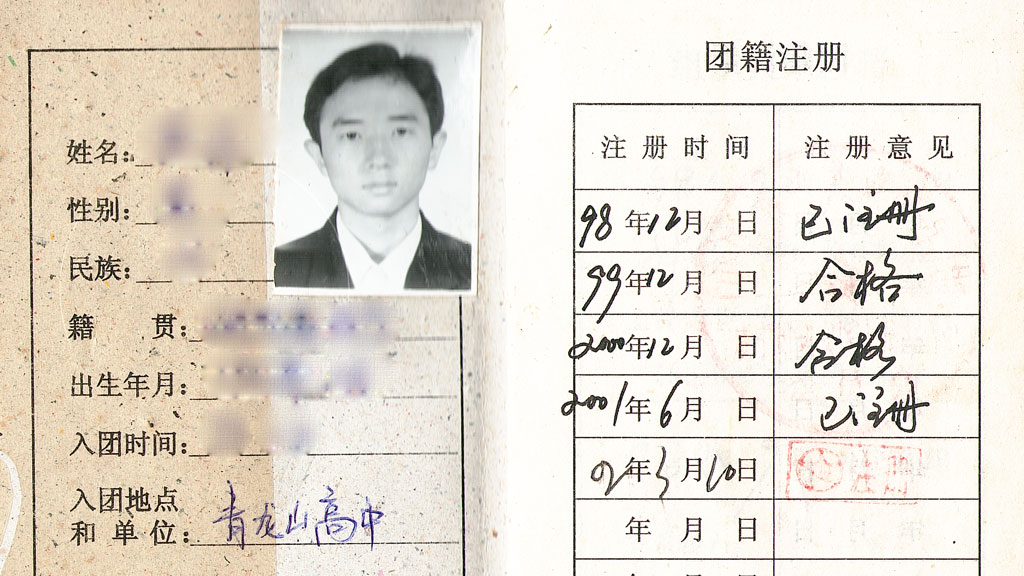 姓名:
性别:
民族:
籍 贯:
出生年月:
入团时间:
入团地点
和单位: 青龙山高中
团籍注册
注册时间 注册意见
98年12月 日 已注册
99年12月 日 合格
2000年12月 日 合格
2001年6月 日 已注册
02年5月10日 注册
年 月 日
年 月 日